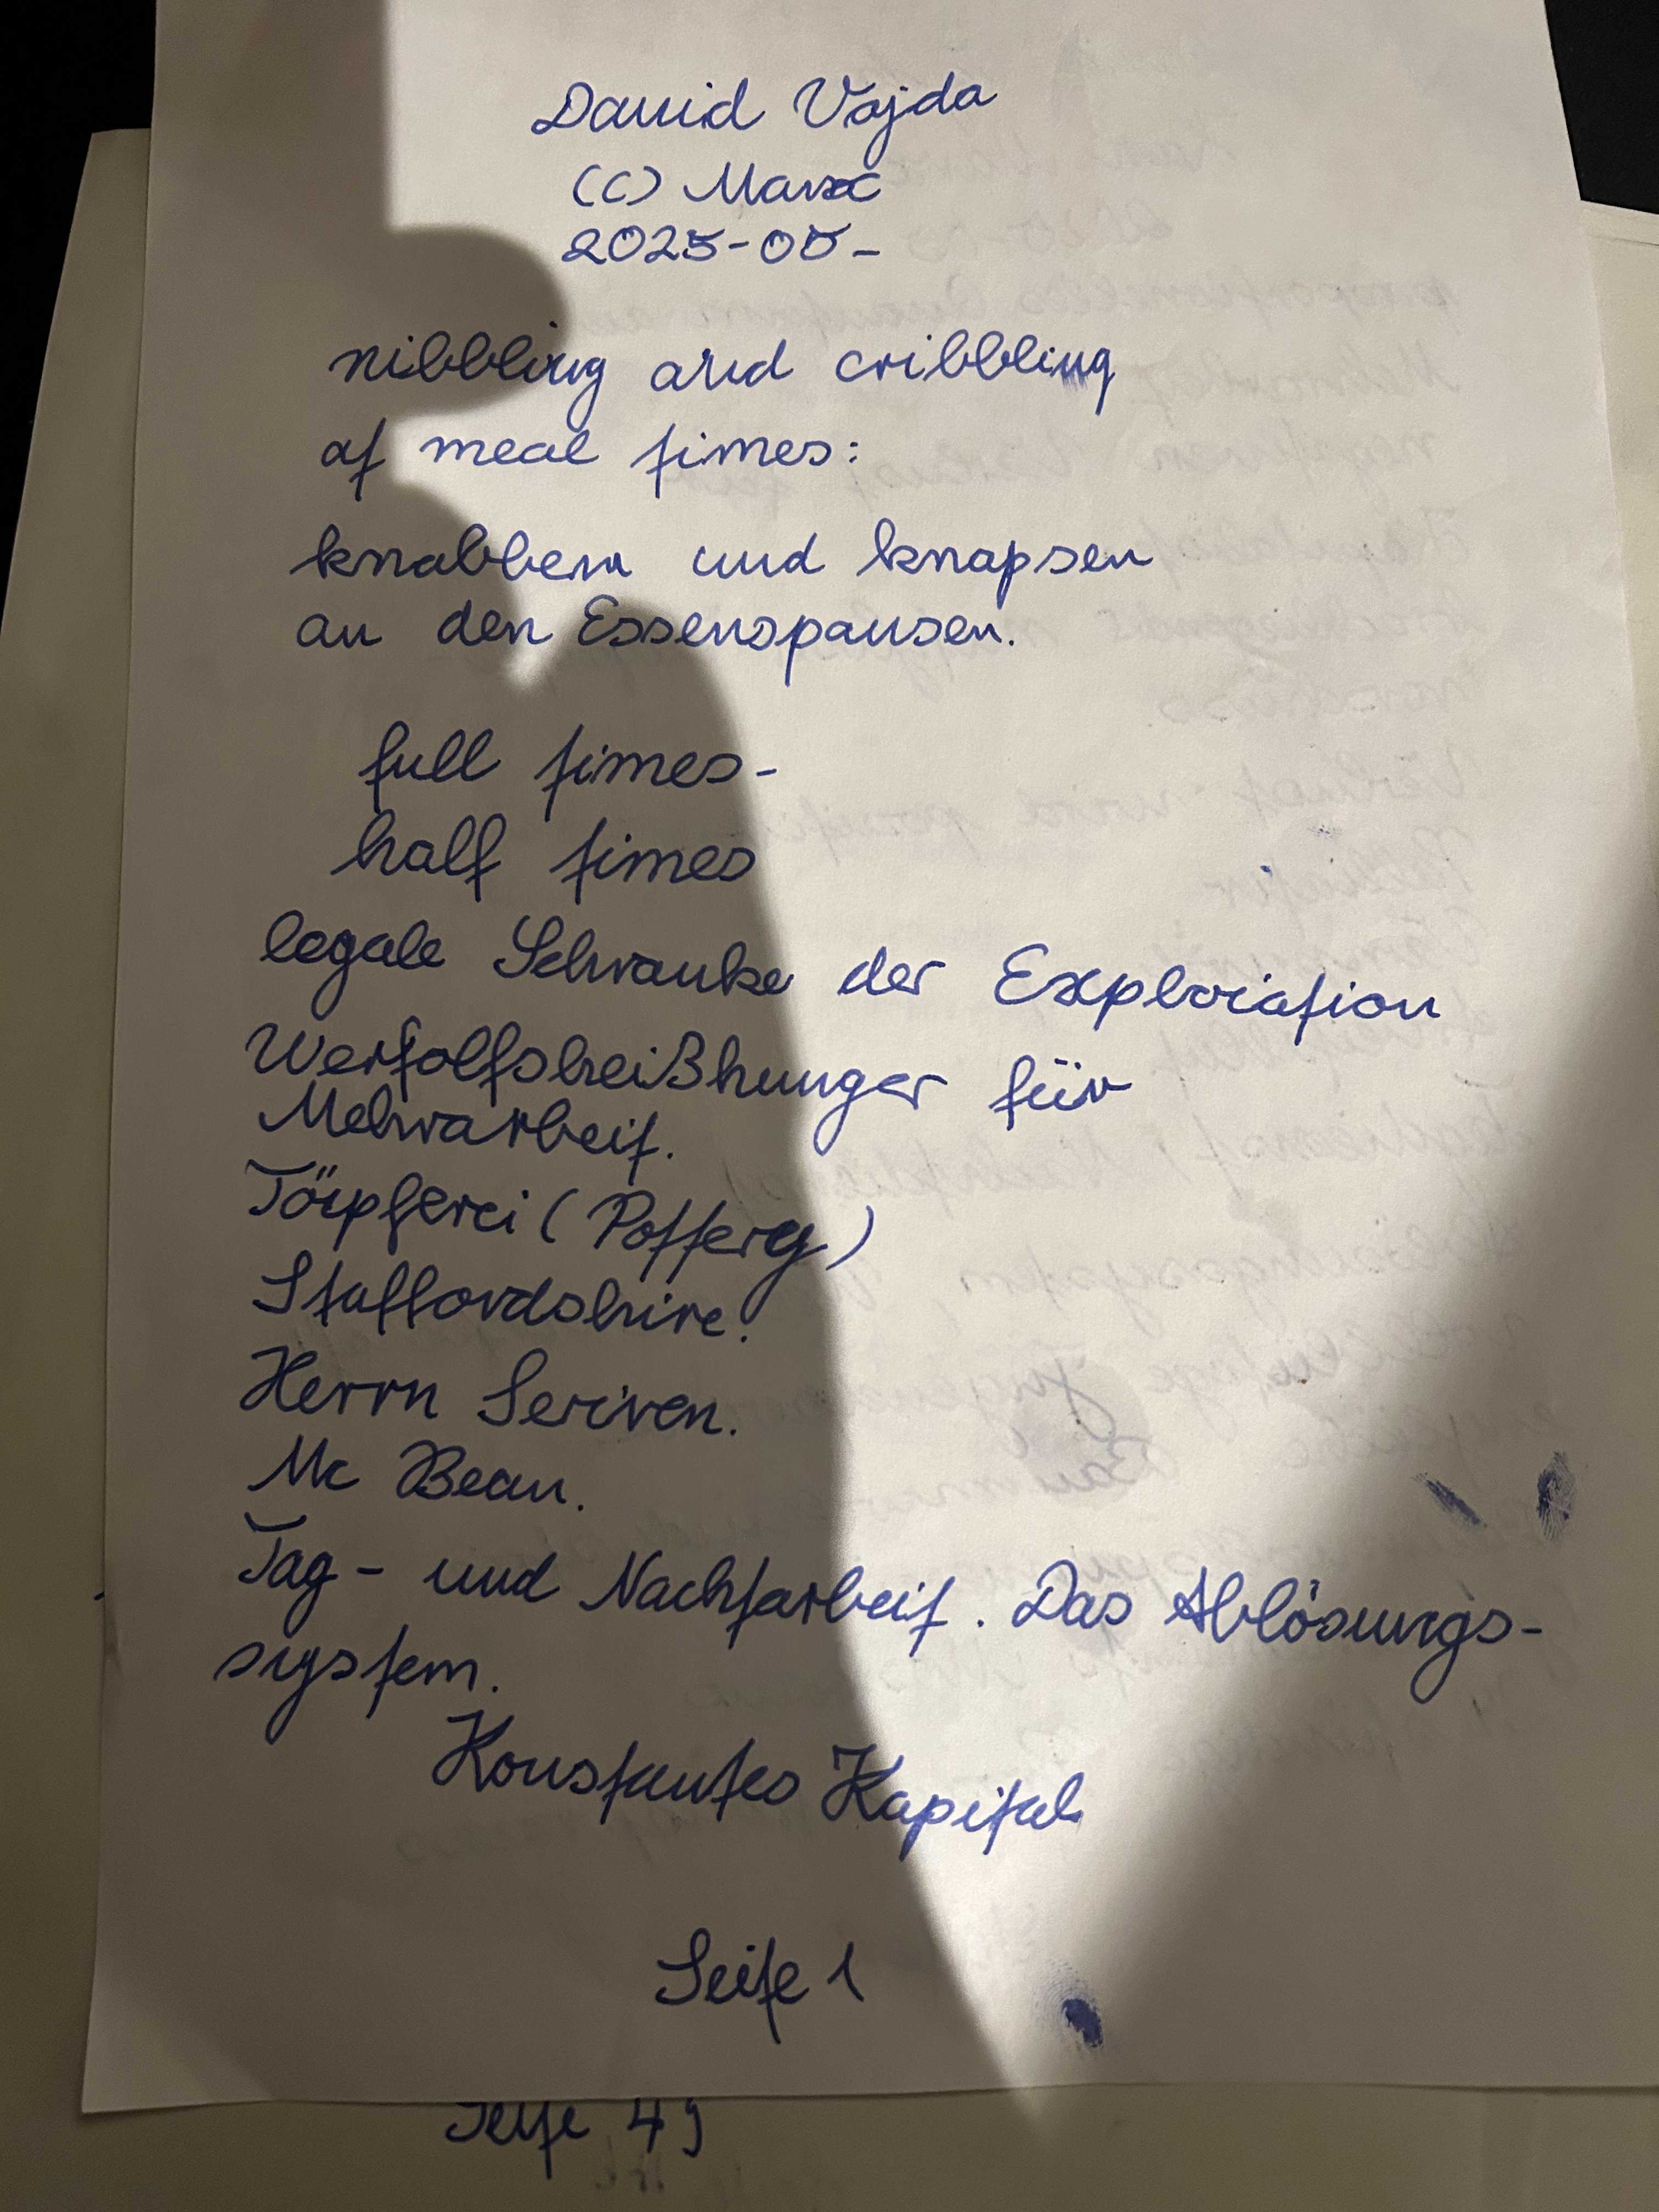 David Vajda
(C) Marx
2025-05-
nibbling and cribbling
at meal times:
knabbern und knapsen
an den Essenspausen.
full times-
half times
legale Schranke der Exploriation
Werfolfsheißhunger für
Mehrarbeit.
Törpferei (Pottery)
Staffordshire!
Herrn Scriven.
Mc Bean.
Tag- und Nachtarbeit. Das Ablösungs-
system.
Konstantes Kapital
Seite 1
Seite 49